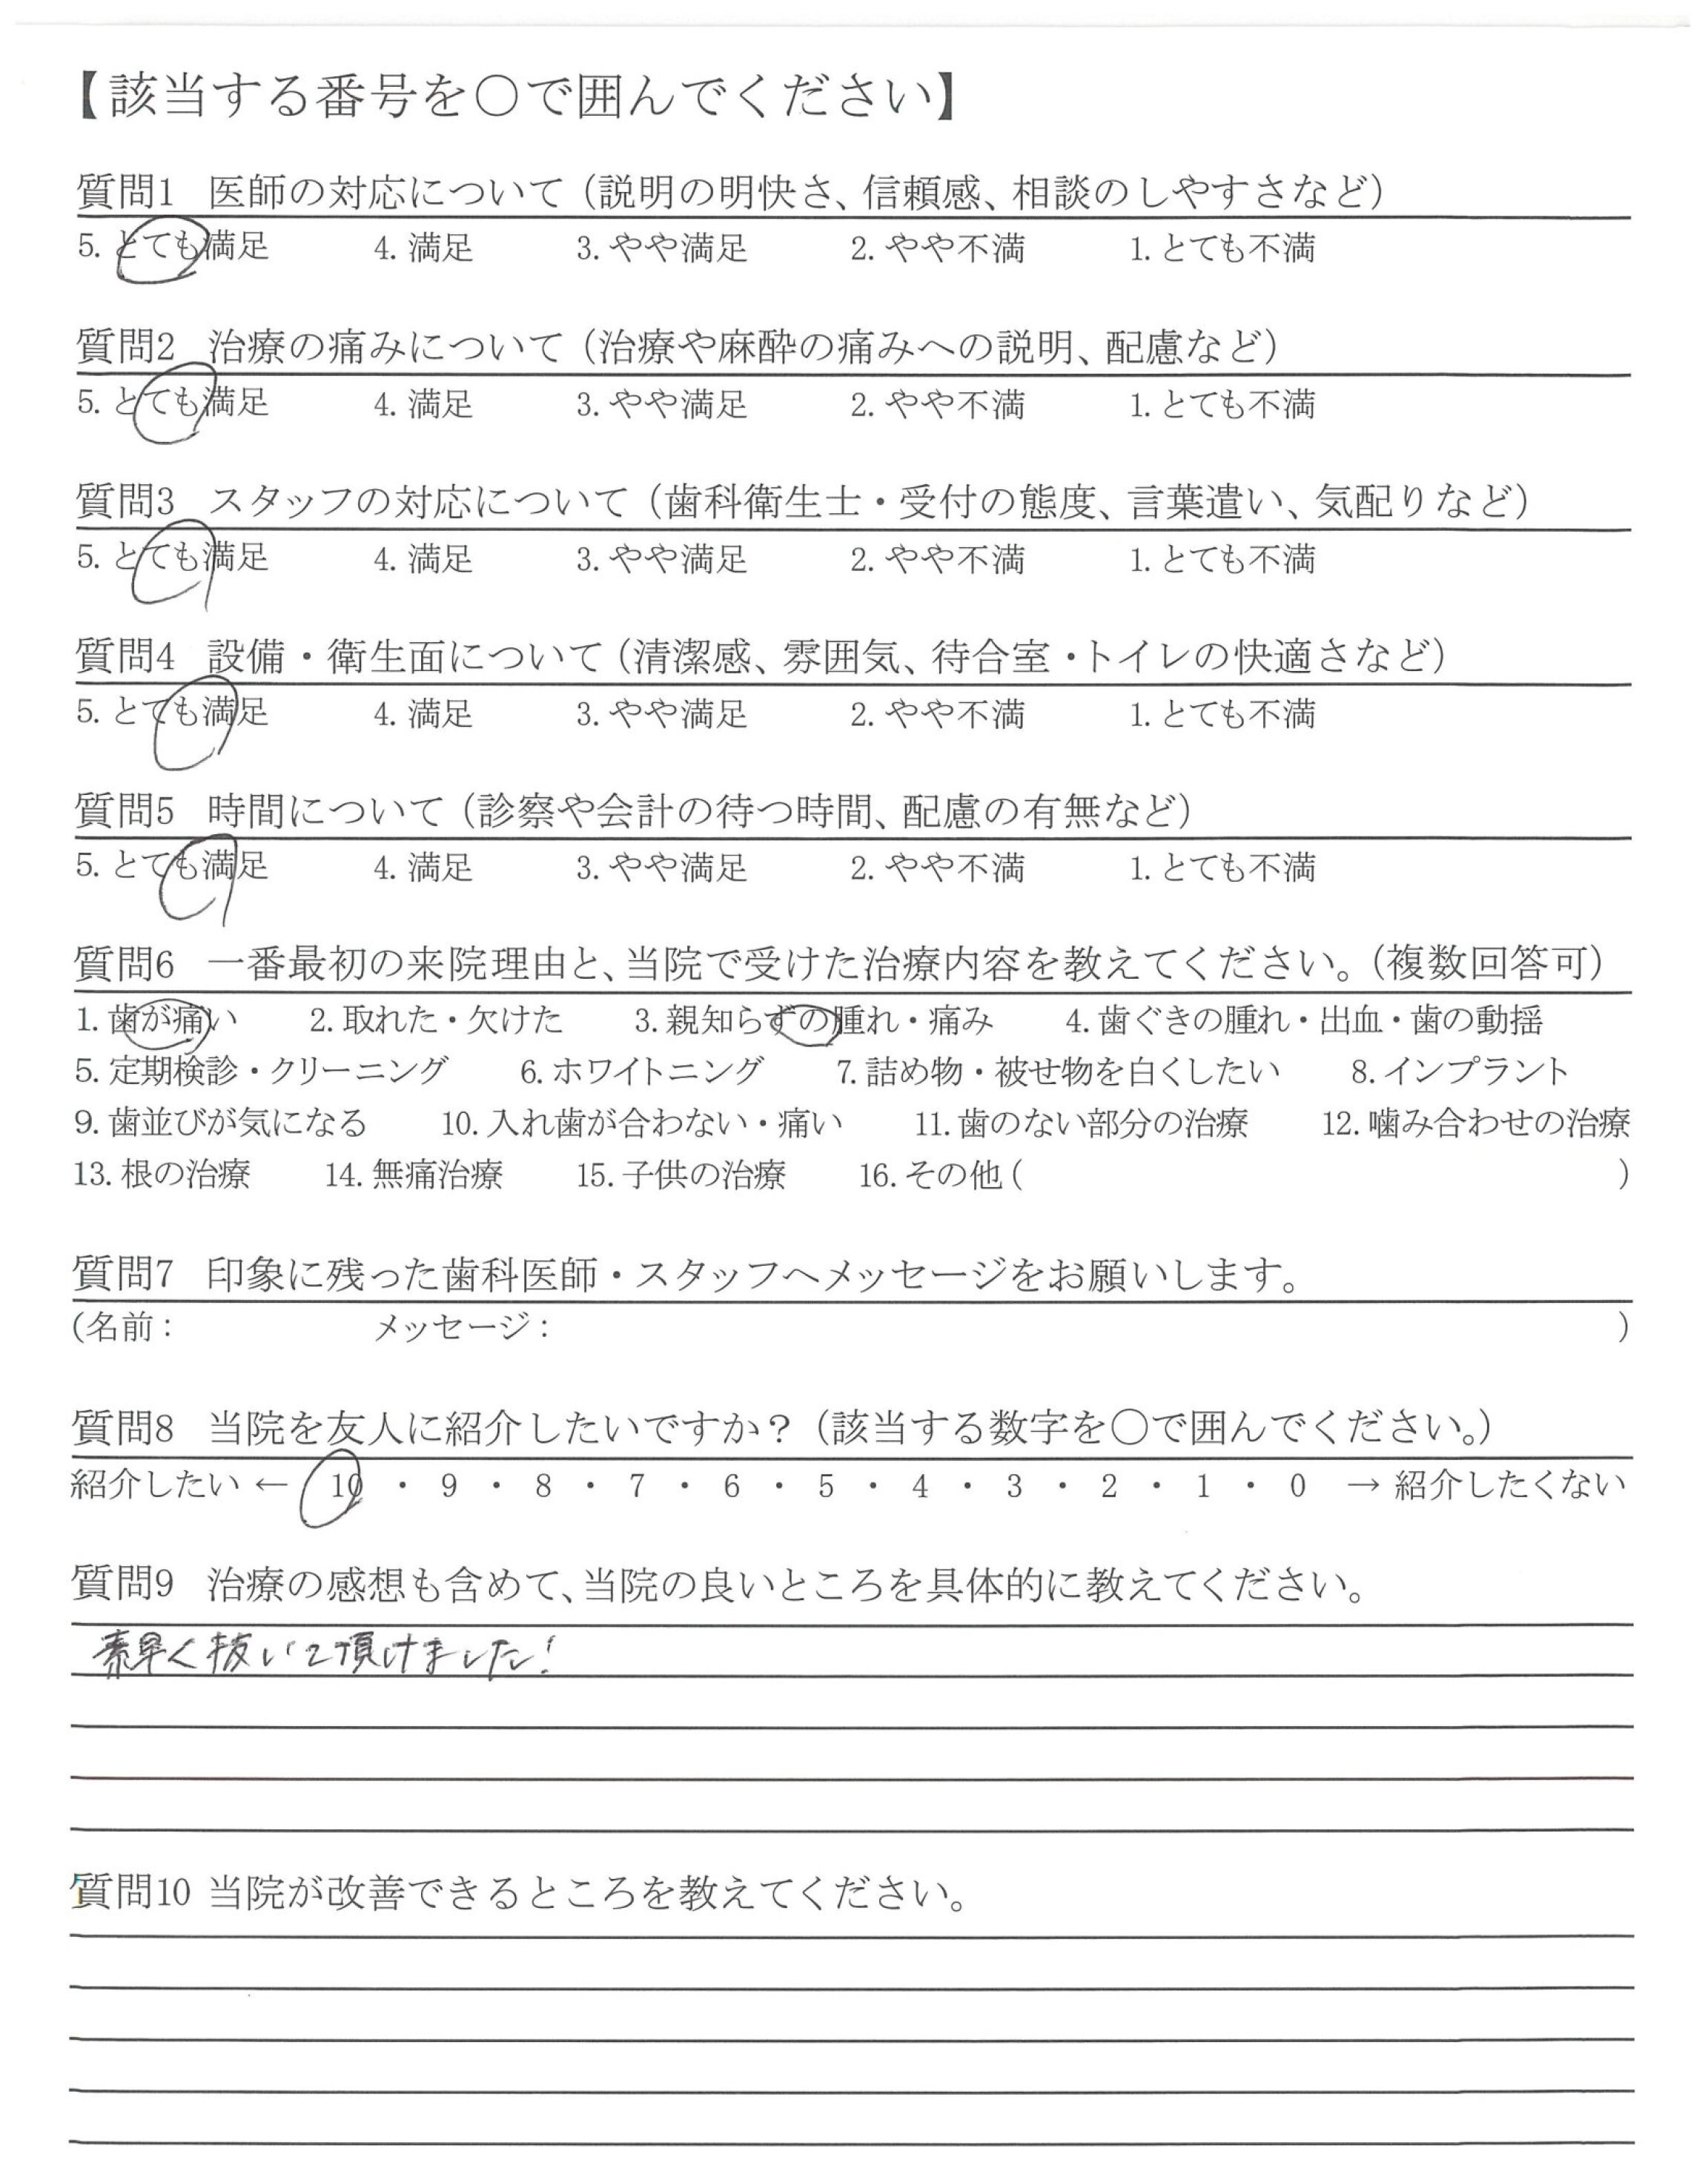 【該当する番号を○で囲んでください】
質問1 医師の対応について（説明の明快さ、信頼感、相談のしやすさなど）
5. とても満足 4. 満足 3. やや満足 2. やや不満 1. とても不満
質問2 治療の痛みについて（治療や麻酔の痛みへの説明、配慮など）
5. とても満足 4. 満足 3. やや満足 2. やや不満 1. とても不満
質問3 スタッフの対応について（歯科衛生士・受付の態度、言葉遣い、気配りなど）
5. とても満足 4. 満足 3. やや満足 2. やや不満 1. とても不満
質問4 設備・衛生面について（清潔感、雰囲気、待合室・トイレの快適さなど）
5. とても満足 4. 満足 3. やや満足 2. やや不満 1. とても不満
質問5 時間について（診察や会計の待つ時間、配慮の有無など）
5. とても満足 4. 満足 3. やや満足 2. やや不満 1. とても不満
質問6 一番最初の来院理由と、当院で受けた治療内容を教えてください。（複数回答可）
1. 歯が痛い 2. 取れた・欠けた 3. 親知らずの腫れ・痛み 4. 歯ぐきの腫れ・出血・歯の動揺
5. 定期検診・クリーニング 6. ホワイトニング 7. 詰め物・被せ物を白くしたい 8. インプラント
9. 歯並びが気になる 10. 入れ歯が合わない・痛い 11. 歯のない部分の治療 12. 噛み合わせの治療
13. 根の治療 14. 無痛治療 15. 子供の治療 16. その他 ( )
質問7 印象に残った歯科医師・スタッフへメッセージをお願いします。
(名前 : メッセージ : )
質問8 当院を友人に紹介したいですか？（該当する数字を○で囲んでください。）
紹介したい ← 10 ・ 9 ・ 8 ・ 7 ・ 6 ・ 5 ・ 4 ・ 3 ・ 2 ・ 1 ・ 0 → 紹介したくない
質問9 治療の感想も含めて、当院の良いところを具体的に教えてください。
素早く抜いて頂けました!
質問10 当院が改善できるところを教えてください。